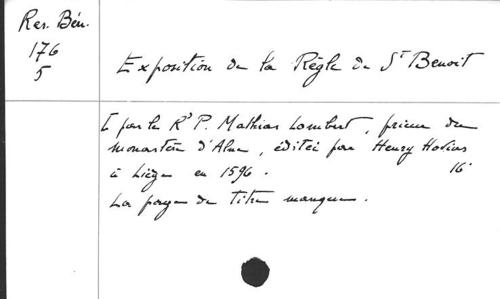 Res. Bén.
176
5
Exposition de la Règle de St Benoit
[ par le Rd P. Mathias Lambert, prieur du
monastère d'Alne, éditée par Henry Hovius
à Liège en 1596. 16°
La page de titre manque.